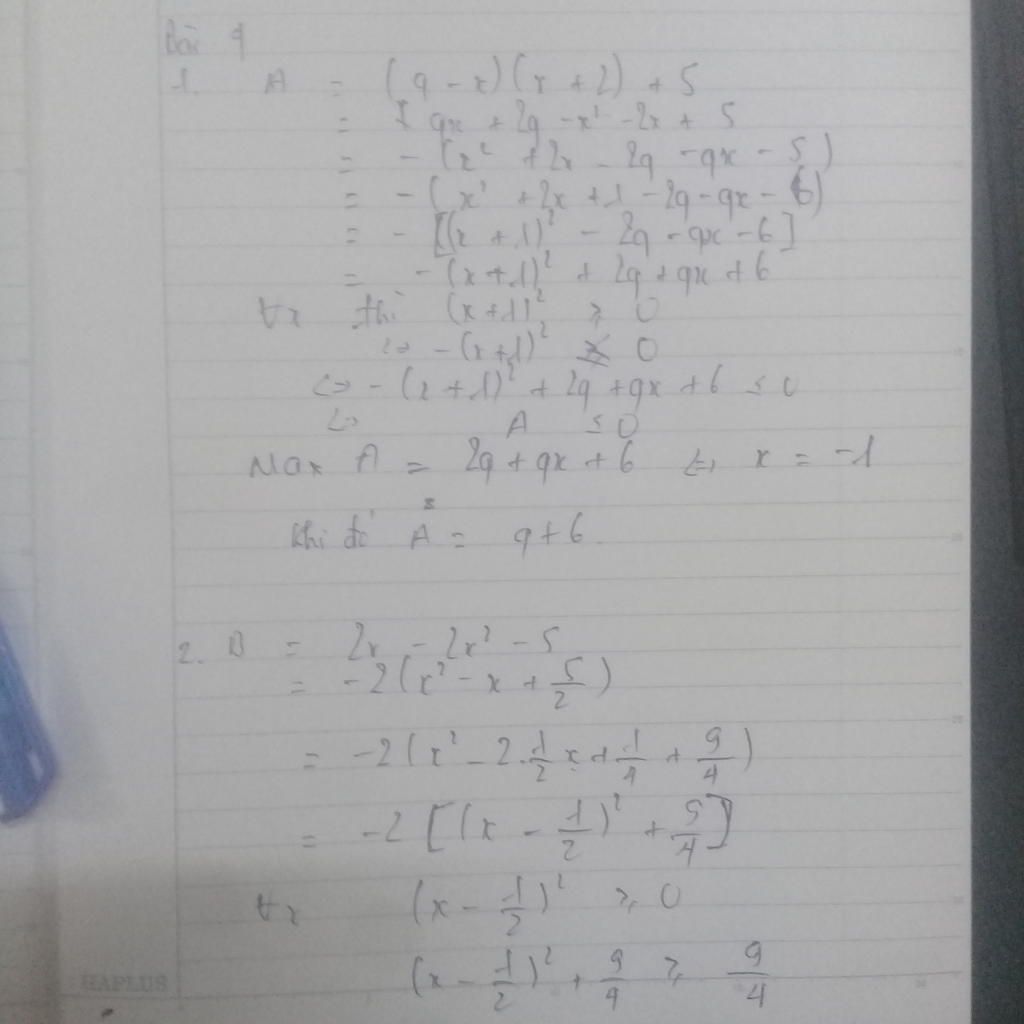 Bài 9
1. A = (q - x)(x + 2) + 5
= qx + 2q - x² - 2x + 5
= - (x² + 2x - 2q - qx - 5)
= - (x² + 2x + 1 - 2q - qx - 6)
= - [(x + 1)² - 2q - qx - 6]
= - (x + 1)² + 2q + qx + 6
∀x thì (x + 1)² ≥ 0
<=> - (x + 1)² 0
<=> - (x + 1)² + 2q + qx + 6 ≤ 0
<=> A ≤ 0
Max A = 2q + qx + 6 <=> x = -1
Khi đó A = q + 6.
2. B = 2x - 2x² - 5
= -2(x² - x + 5/2)
= -2(x² - 2.1/2 x + 1/4 + 9/4)
= -2[(x - 1/2)² + 9/4]
∀x (x - 1/2)² ≥ 0
(x - 1/2)² + 9/4 ≥ 9/4
HAPLUS